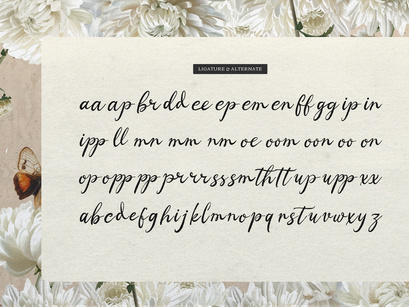 LIGATURE & ALTERNATE
aa ap br dd ee ep em en ff gg ip in
ipp ll mn mm nm oe oom oon oo on
op opp pp pr rr sss sm th tt up upp xx
abcdefghijklmnopqrstuvwxyz